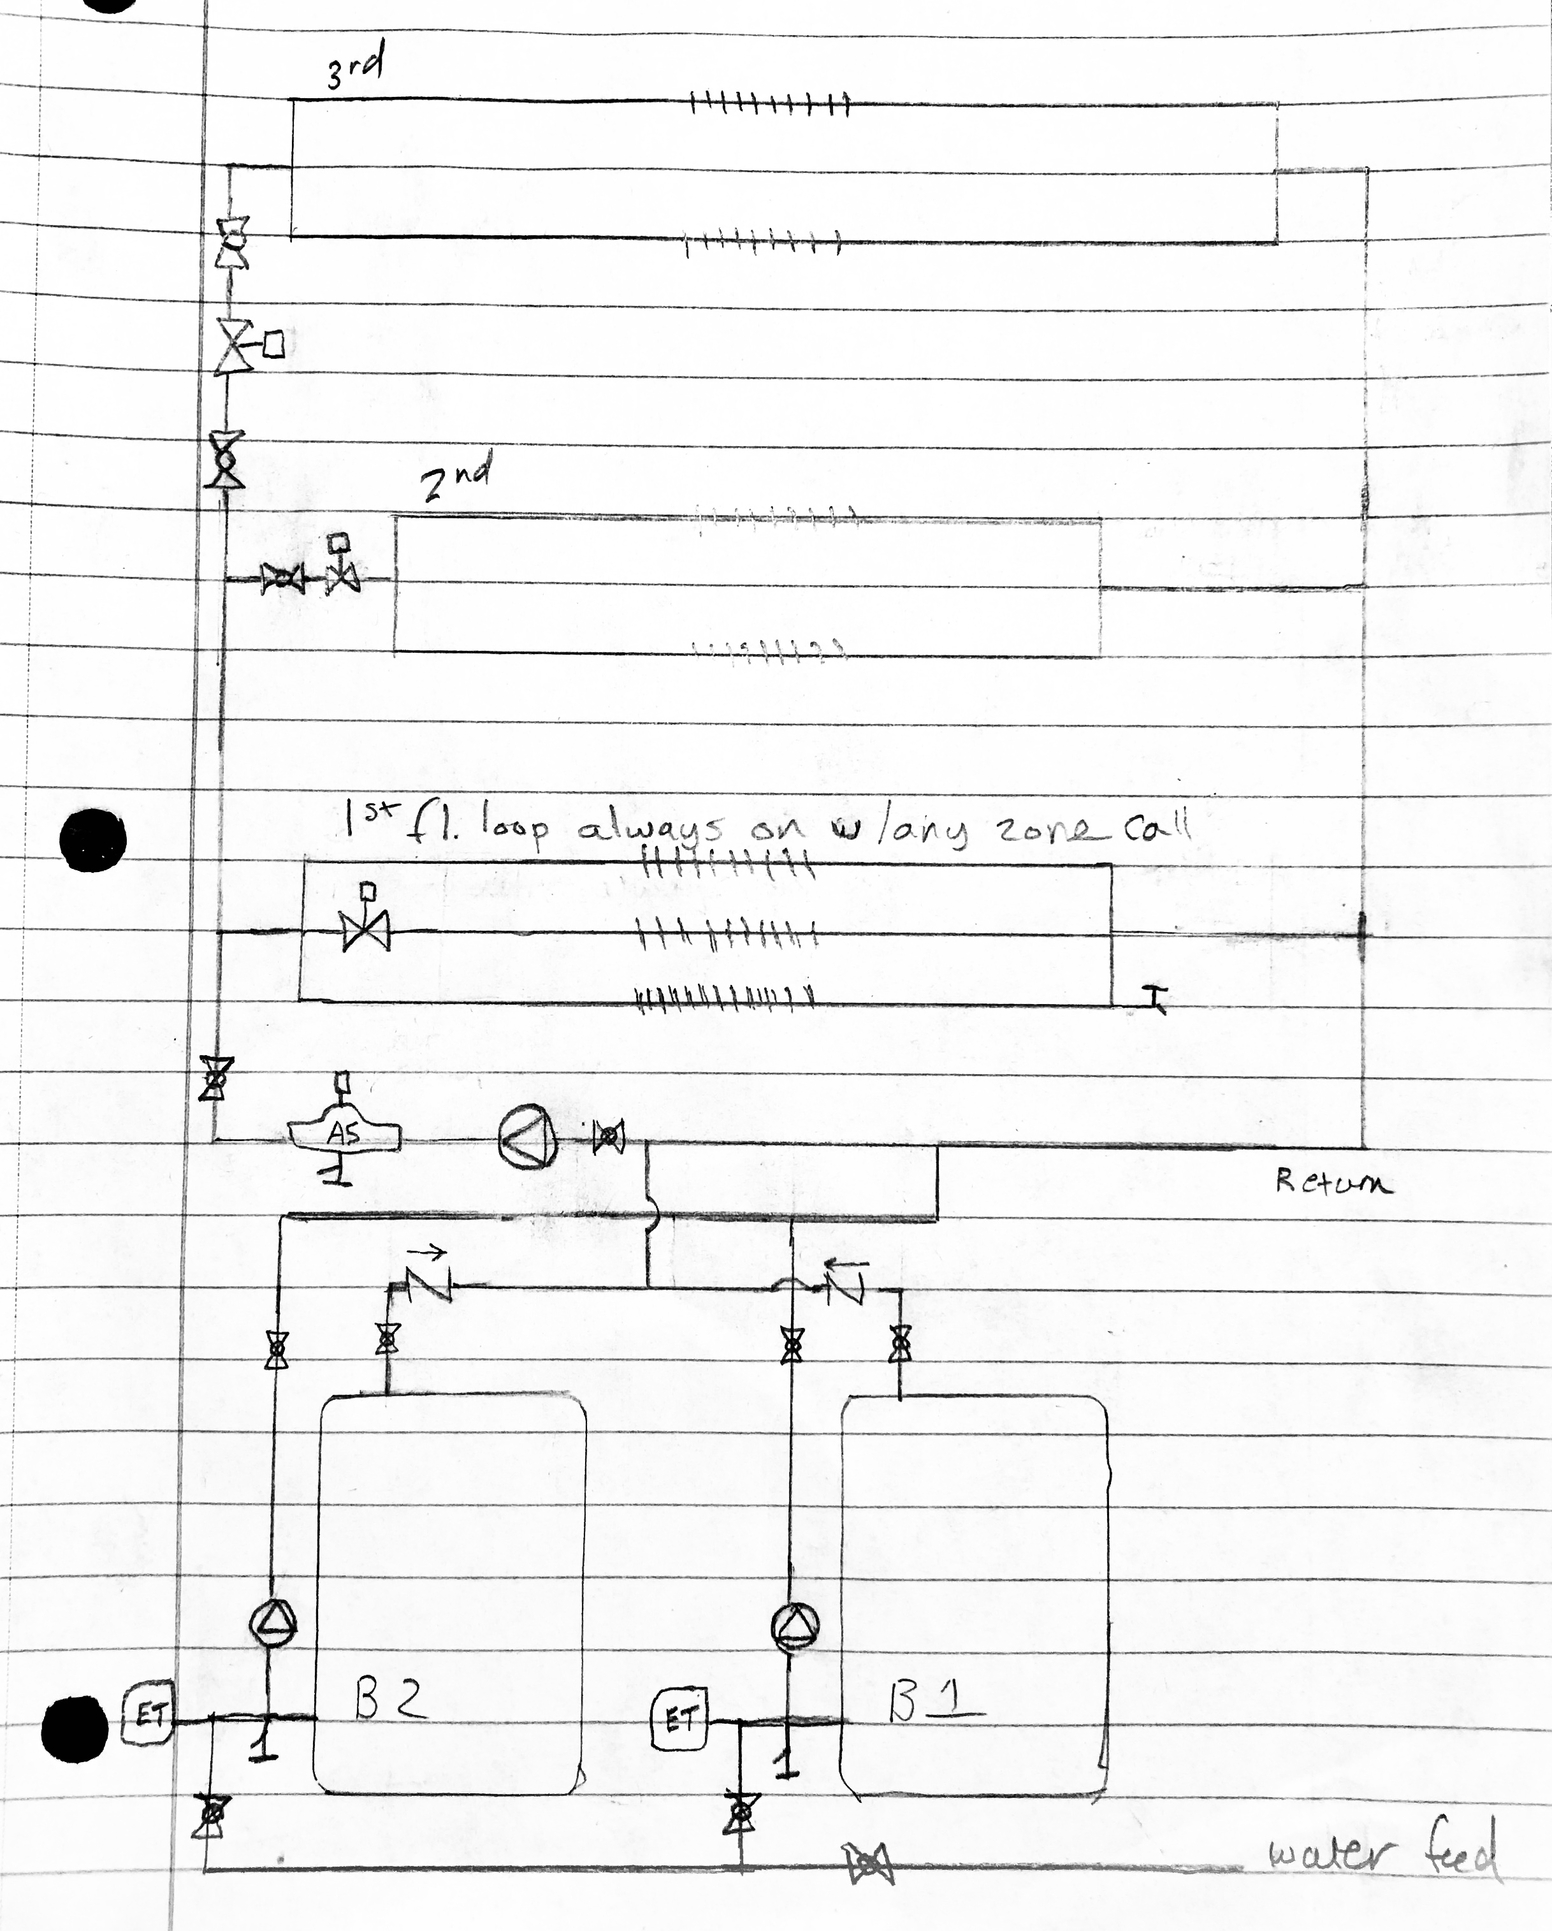 3rd
2nd
1st fl. loop always on w/any zone call
AS
Return
B2
B1
ET
ET
water feed